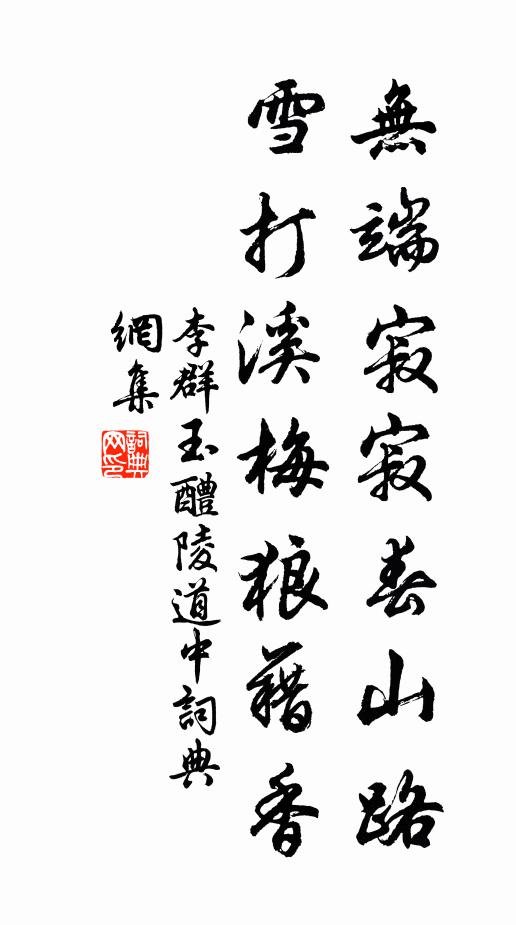 無端寂寂春山路
雪打溪梅狼藉香
李群玉醴陵道中詞典
網集
詞典網印